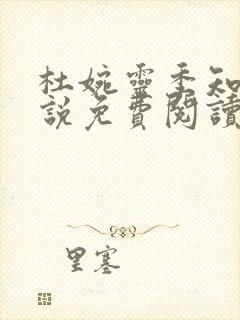 杜婉靈季知
說免費閱讀
里塞